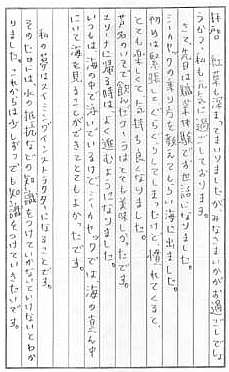 拝啓　紅葉も深まってまいりましたがみなさまいかがお過ごしでし
ょうか。私も元気に過ごしております。
さて、先日は職業体験でお世話になりました。
シーカヤックの乗り方を教えてもらい海に出ました。
初めは緊張してぐらぐらしてしまったけど、慣れてくると、
とても楽しくて気持ち良くなりました。
芦名のいそで飲んだコーラはとても美味しかったです。
マリーナに帰る時はよく進むようになりました。
いつもは海の中で泳いでいるけど、シーカヤックでは海の真ん中
にいて海を見ることができてとてもよかったです。
私の夢はスイミングインストラクターになることです。
そのためには水の抵抗などの知識をつけていかないといけないとわか
りました。これからは少しずつでも知識をつけていきたいです。